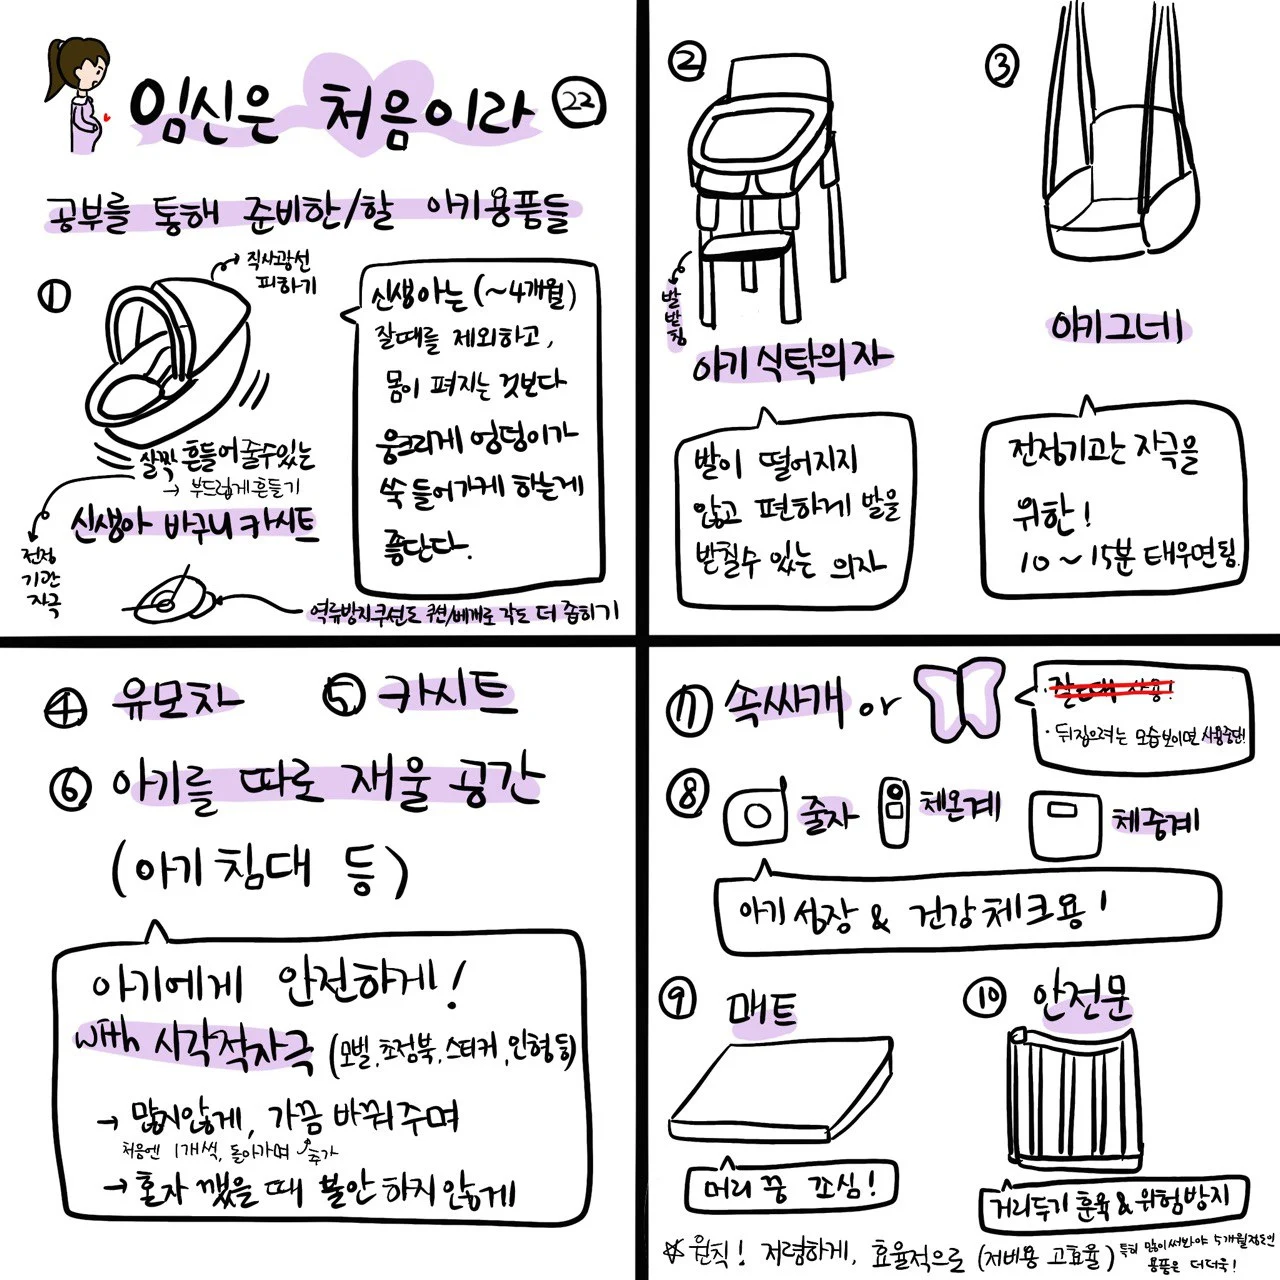 임신은 처음이라 22
공부를 통해 준비한/할 아기용품들
①
직사광선
피하기
살짝 흔들어 줄수있는
→ 부드럽게 흔들기
신생아 바구니 카시트
전정
기관
자극
역류방지쿠션도 쿠션/베개로 각도 더 좁히기
신생아는 (~4개월)
잘때를 제외하고,
몸이 펴지는 것보다
웅크리게 엉덩이가
쏙 들어가게 하는게
좋단다.
②
발받침
아기 식탁의자
발이 떨어지지
않고 편하게 발을
받칠수 있는 의자
③
아기그네
전정기관 자극을
위한!
10~15분 태우면됨.
④ 유모차 ⑤ 카시트
⑥ 아기를 따로 재울 공간
(아기침대 등)
아기에게 안전하게!
with 시각적자극 (모빌,초점북,스티커,인형등)
→ 많지않게, 가끔 바꿔주며
처음엔 1개씩, 돌아가며 추가
→ 혼자 깼을 때 불안하지않게
⑦ 속싸개 or
· 잘때 사용!
· 뒤집으려는 모습보이면 사용중단!
⑧ 줄자 체온계 체중계
아기 성장 & 건강체크용!
⑨ 매트
머리 쿵 조심!
⑩ 안전문
거리두기 훈육 & 위험방지
☆ 원칙! 저렴하게, 효율적으로 (저비용 고효율) 특히 많이써봐야 5개월정도인
용품은 더더욱!